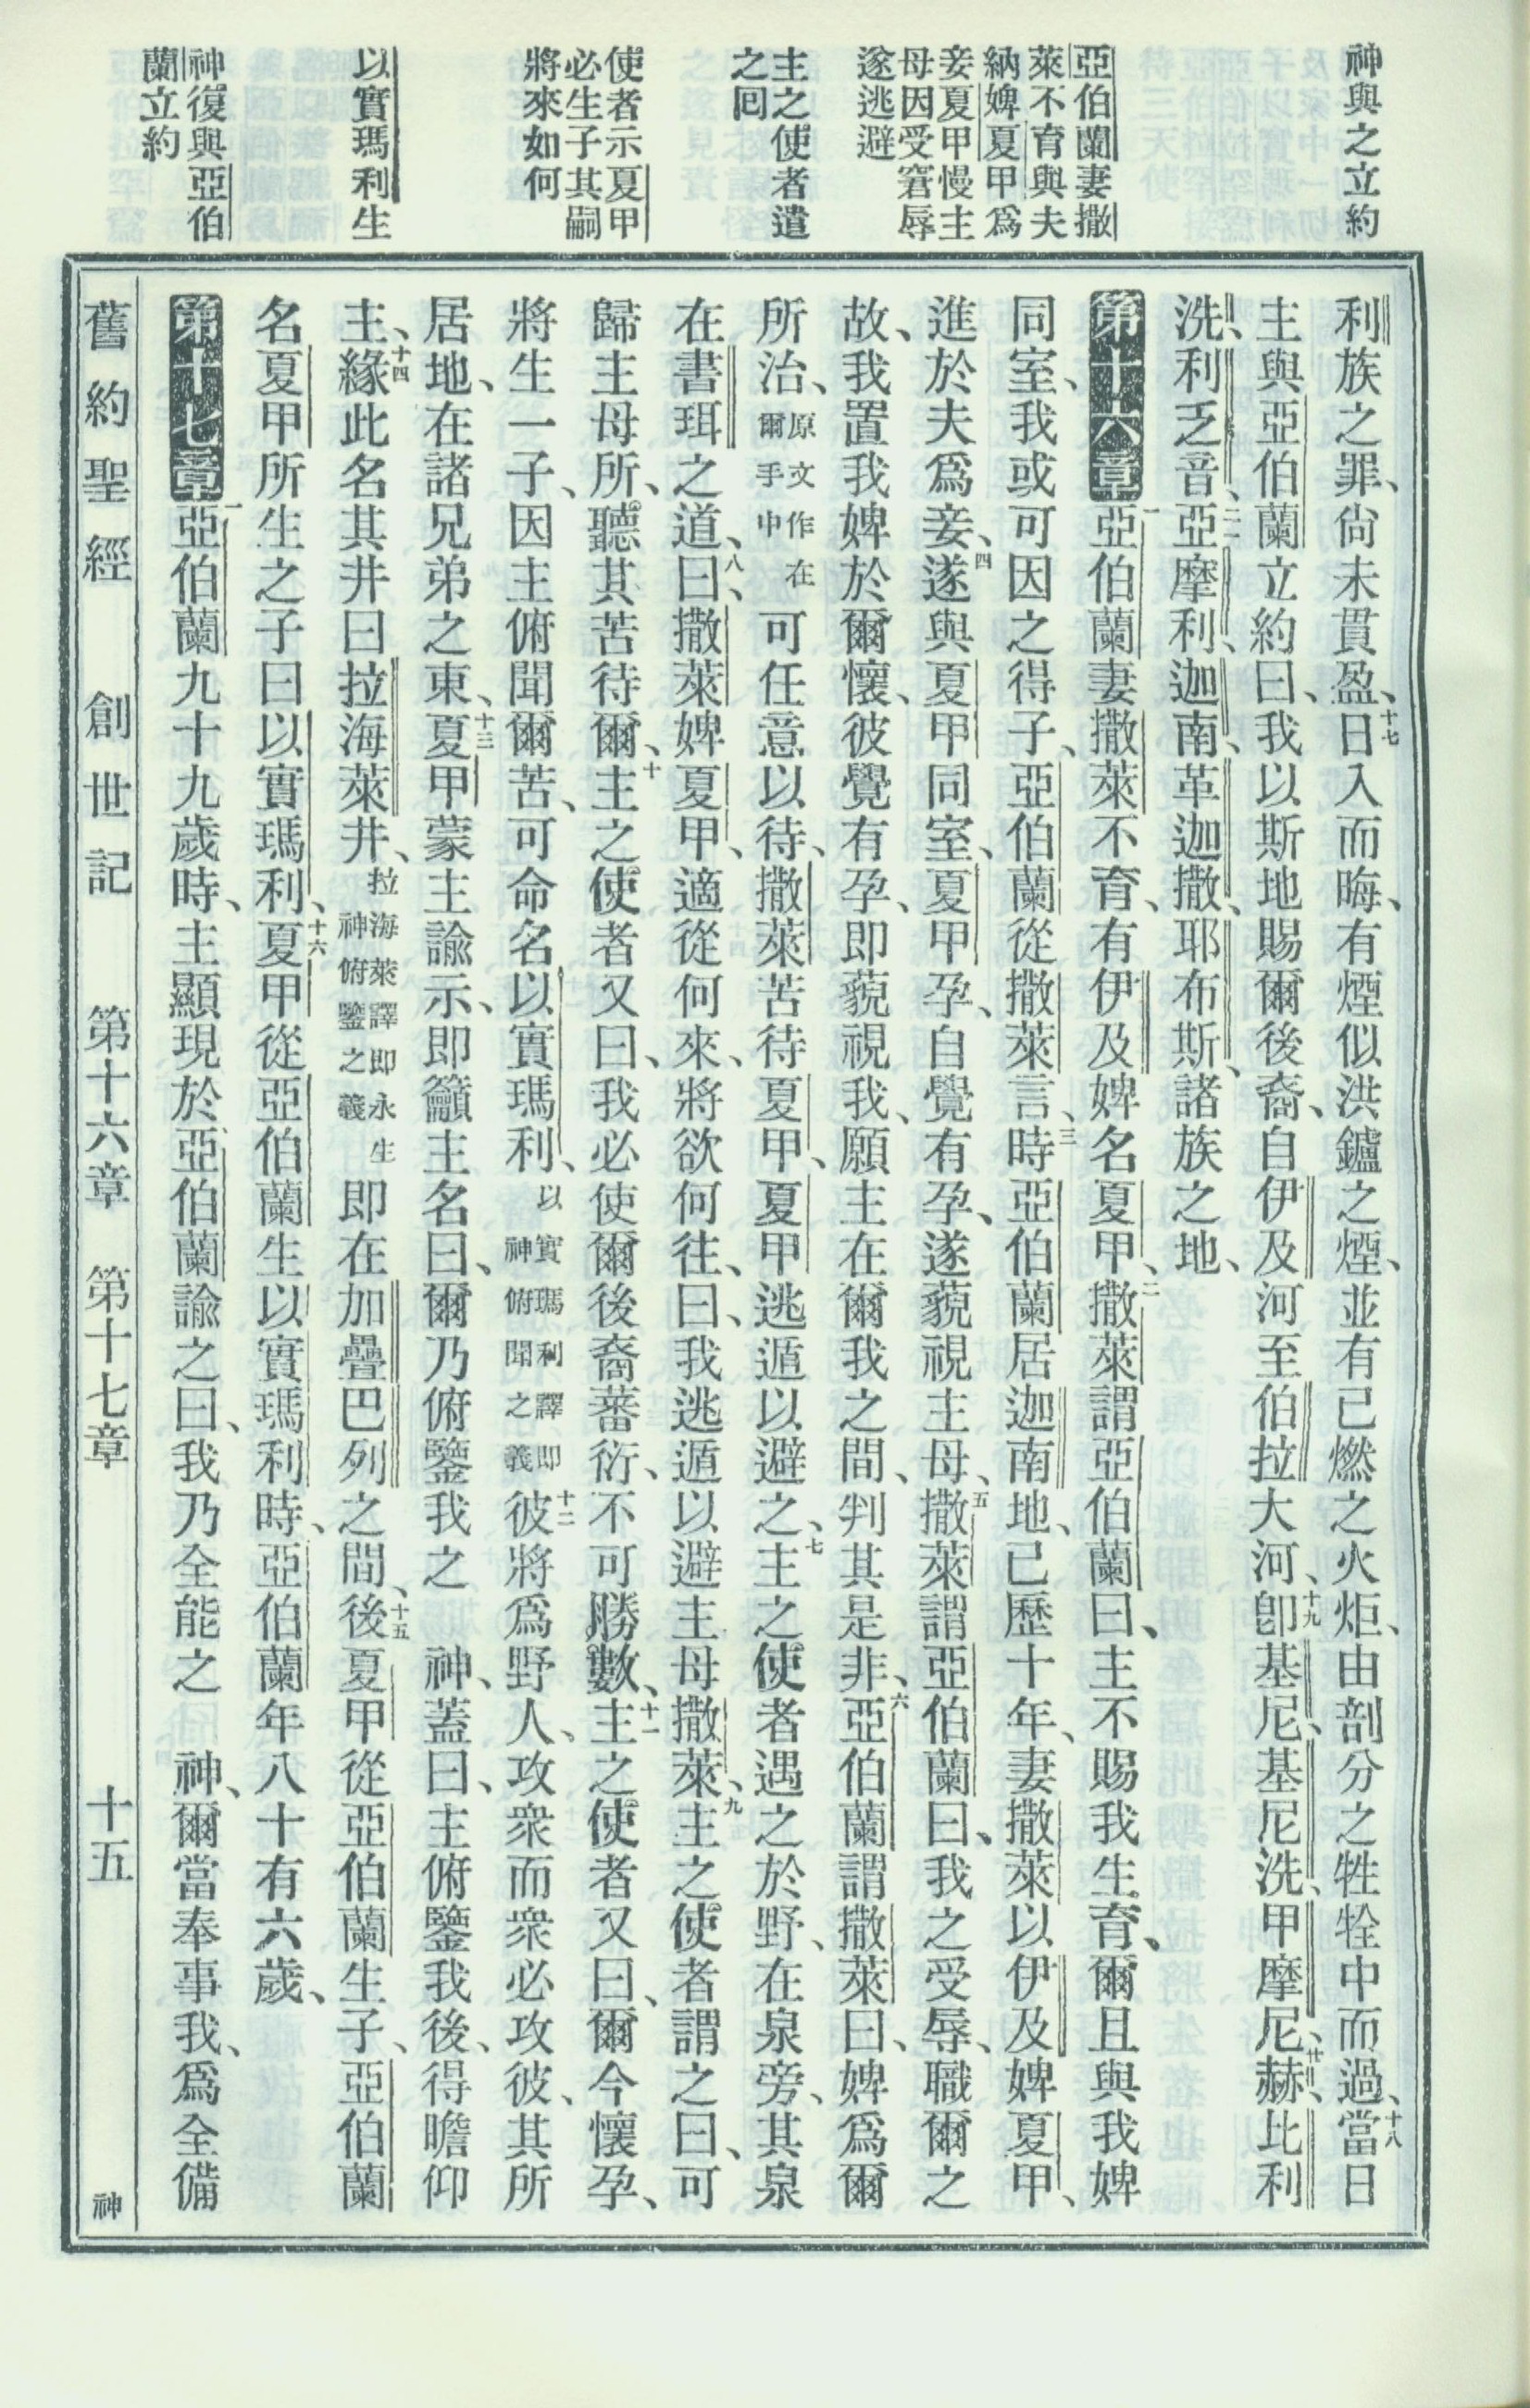 神與之立約
亞伯蘭妻撒
萊不育與夫
納婢夏甲爲
妾夏甲慢主
母因受窘辱
遂逃避
主之使者遣
之回
使者示夏甲
必生子其嗣
將來如何
以實瑪利生
神復與亞伯
蘭立約
利族之罪、尚未貫盈、十七日入而晦、有煙似洪鑪之煙、並有已燃之火炬、由剖分之牲牷中而過、十八當日
主與亞伯蘭立約曰、我以斯地賜爾後裔、自伊及河至伯拉大河、十九卽基尼、基尼洗、甲摩尼、廿赫、比利
洗、利乏音、廿一亞摩利、迦南、革迦撒、耶布斯、諸族之地、
第十六章一亞伯蘭妻撒萊不育、有伊及婢名夏甲、二撒萊謂亞伯蘭曰、主不賜我生育、爾且與我婢
同室、我或可因之得子、亞伯蘭從撒萊言、三時亞伯蘭居迦南地、已歷十年、妻撒萊以伊及婢夏甲、
進於夫爲妾、四遂與夏甲同室、夏甲孕、自覺有孕、遂藐視主母、五撒萊謂亞伯蘭曰、我之受辱、職爾之
故、我置我婢於爾懷、彼覺有孕、即藐視我、願主在爾我之間、判其是非、六亞伯蘭謂撒萊曰、婢爲爾
所治、原文作在爾手中可任意以待、撒萊苦待夏甲、夏甲逃遁以避之、七主之使者遇之於野、在泉旁、其泉
在書珥之道、八曰、撒萊婢夏甲、適從何來、將欲何往、曰、我逃遁以避主母撒萊、九主之使者謂之曰、可
歸主母所、聽其苦待爾、十主之使者又曰、我必使爾後裔蕃衍、不可勝數、十一主之使者又曰、爾今懷孕、
將生一子、因主俯聞爾苦、可命名以實瑪利、以實瑪利譯即神俯聞之義十二彼將爲野人、攻衆而衆必攻彼、其所
居地、在諸兄弟之東、十三夏甲蒙主諭示、即籲主名曰、爾乃俯鑒我之 神、蓋曰、主俯鑒我後、得瞻仰
主、十四緣此名其井曰拉海萊井、拉海萊譯即永生神俯鑒之義即在加疊巴列之間、十五後夏甲從亞伯蘭生子、亞伯蘭
名夏甲所生之子曰以實瑪利、十六夏甲從亞伯蘭生以實瑪利時、亞伯蘭年八十有六歲、
第十七章一亞伯蘭九十九歲時、主顯現於亞伯蘭諭之曰、我乃全能之 神、爾當奉事我、爲全備
舊約聖經 創世記 第十六章 第十七章 十五 神